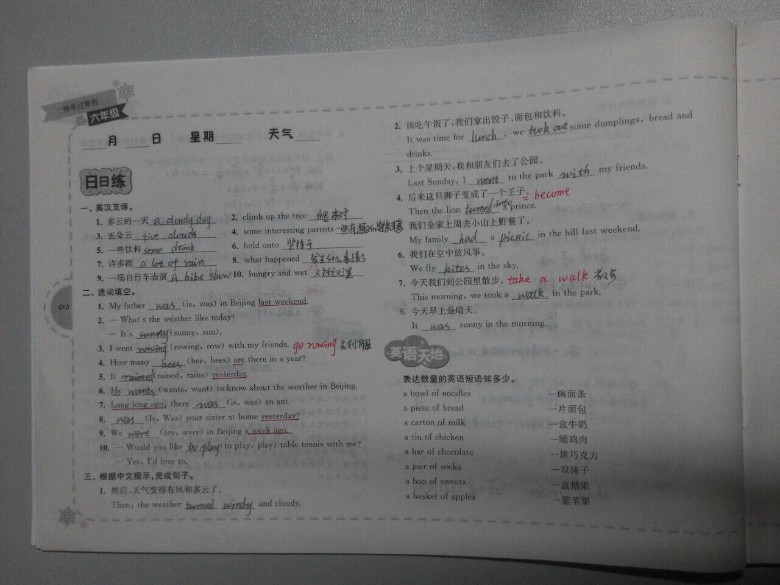 快乐过寒假
六年级
月 日 星期 天气
日日练
一、英汉互译。
1. 多云的一天 a cloudy day 2. climb up the tree 爬树
3. 五朵云 five clouds 4. some interesting parrots 一些有趣的鹦鹉
5. 一些饮料 some drink 6. hold onto 紧抓
7. 许多雨 a lot of rain 8. what happened
9. 一场自行车表演 A bike show 10. hungry and wet 又饿又湿
二、选词填空。
1. My father was (is, was) in Beijing last weekend.
2. — What's the weather like today?
— It's sunny (sunny, sun).
3. I went rowing (rowing, row) with my friends. go rowing 去划船
4. How many bees (bee, bees) are there in a year?
5. It rained (rained, rains) yesterday.
6. He wants (wants, want) to know about the weather in Beijing.
7. Long long ago, there was (is, was) an ant.
8. was (Is, Was) your sister at home yesterday?
9. We were (are, were) in Beijing a week ago.
10. — Would you like to play (to play, play) table tennis with me?
Yes, I'd love to.
三、根据中文提示,完成句子。
1. 然后,天气变得有风和多云了。
Then, the weather turned windy and cloudy.
2. 该吃午饭了,我们拿出饺子、面包和饮料。
It was time for lunch, we took out some dumplings, bread and
drinks.
3. 上个星期天,我和朋友们去了公园。
Last Sunday, I went to the park with my friends.
4. 后来这只狮子变成了一个王子。 = become
Then the lion turned into prince.
5. 我们全家上周去小山上野餐了。
My family had a picnic in the hill last weekend.
6. 我们在空中放风筝。
We fly kites in the sky.
7. 今天我们到公园里散步。 take a walk 散步
This morning, we took a walk in the park.
8. 今天早上是晴天。
It was sunny in the morning.
英语天地
表达数量的英语短语知多少。
a bowl of noodles 一碗面条
a piese of bread 一片面包
a carton of milk 一盒牛奶
a tin of chicken 一罐鸡肉
a bar of chocolate 一块巧克力
a pair of socks 一双袜子
a box of sweets 一盒糖果
a basket of apples 一篮苹果